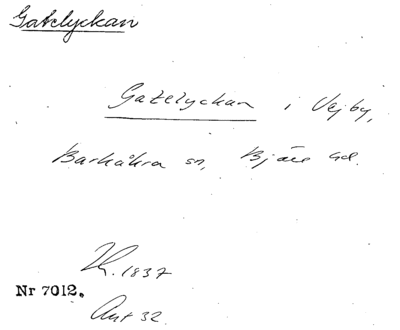 Gatelyckan
Gatelyckan i Vejby,
Barkåkra sn, Bjäre hd.
Lh. 1837
Nr 7012.
Ant 32